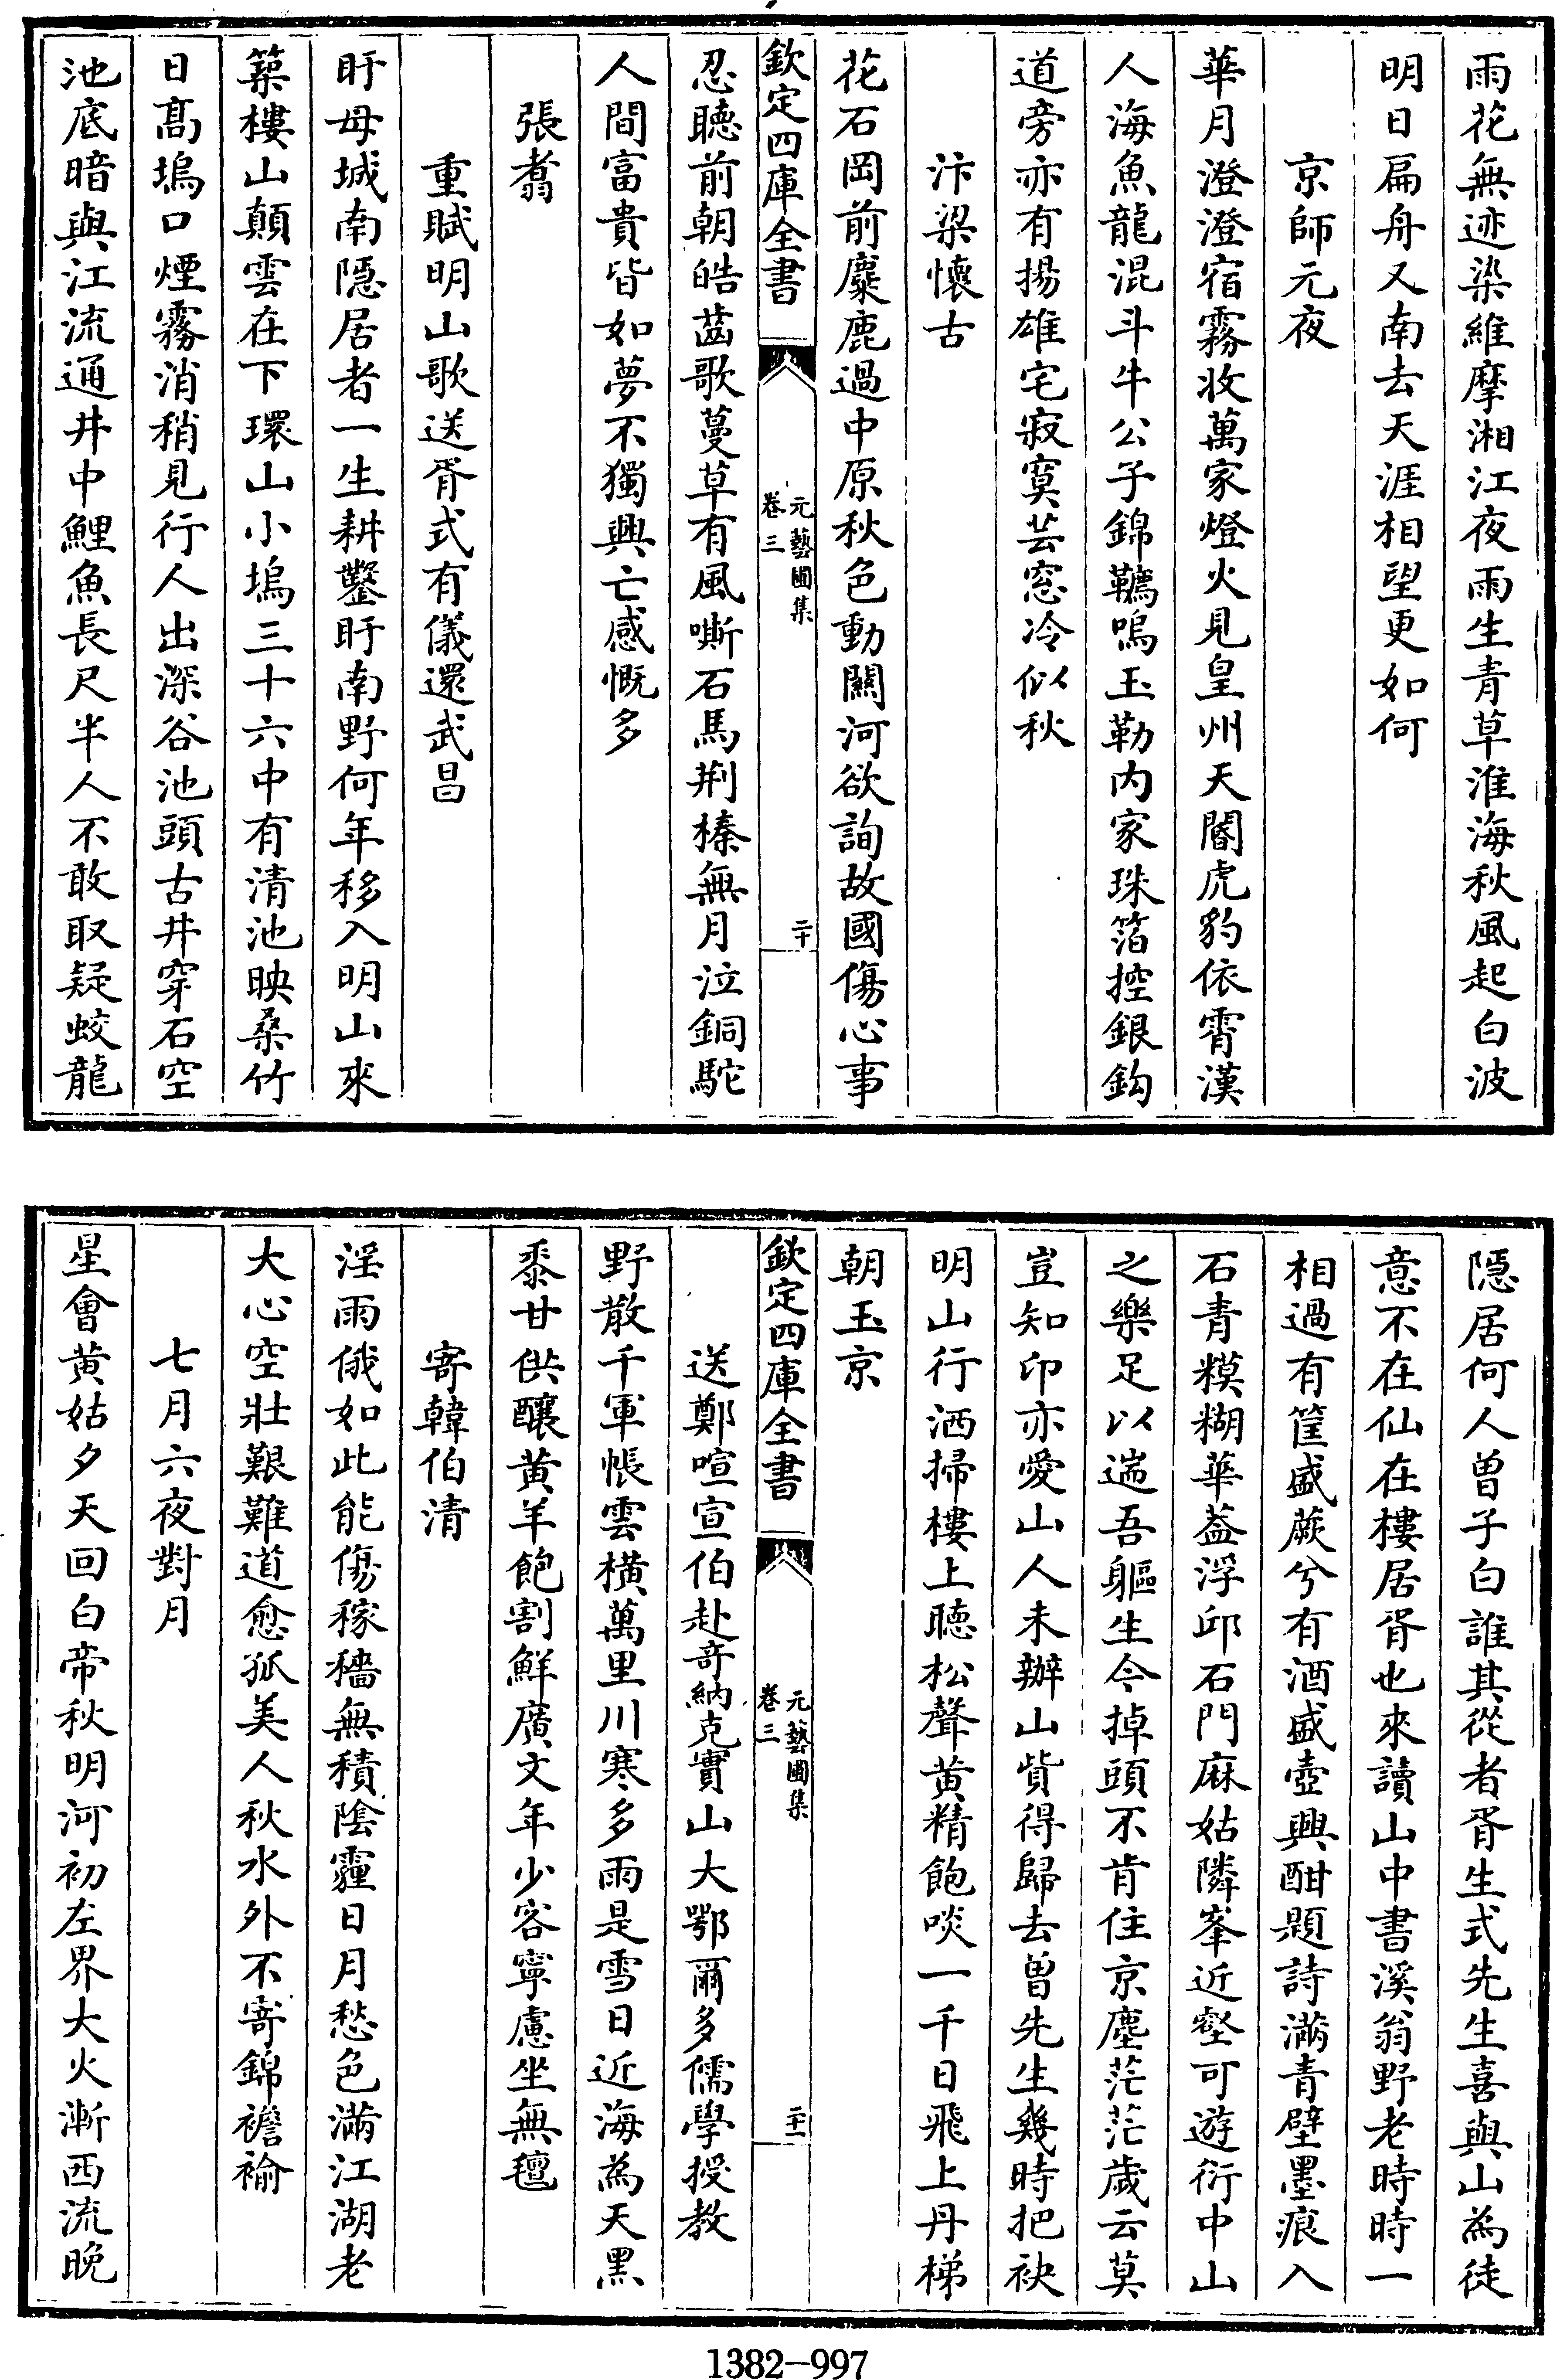 雨花無迹染維摩湘江夜雨生青草淮海秋風起白波
明日扁舟又南去天涯相望更如何
京師元夜
華月澄澄宿霧收萬家燈火見皇州天閽虎豹依霄漢
人海魚龍混斗牛公子錦韉鳴玉勒内家珠箔控銀鈎
道旁亦有揚雄宅寂寞芸窓冷似秋
汴梁懷古
花石岡前麋鹿過中原秋色動闗河欲詢故國傷心事
欽定四庫全書
元藝圃集
卷三
二十
忍聽前朝皓齒歌蔓草有風嘶石馬荆榛無月泣銅駝
人間富貴皆如夢不獨興亡感慨多
張翥
重賦明山歌送胥式有儀還武昌
盱母城南隠居者一生耕鑿盱南野何年移入明山來
築樓山顛雲在下環山小塢三十六中有清池映桑竹
日髙塢口煙霧消稍見行人出深谷池頭古井穿石空
池底暗與江流通井中鯉魚長尺半人不敢取疑蛟龍
隠居何人曽子白誰其從者胥生式先生喜與山為徒
意不在仙在樓居胥也來讀山中書溪翁野老時時一
相過有筐盛蕨兮有酒盛壺興酣題詩滿青壁墨痕入
石青糢糊華葢浮邱石門麻姑隣峯近壑可遊衍中山
之樂足以遄吾軀生今掉頭不肯住京塵茫茫歲云莫
豈知卬亦愛山人未辦山貲得歸去曽先生幾時把袂
明山行洒掃樓上聽松聲黄精飽啖一千日飛上丹梯
朝玉京
欽定四庫全書
元藝圃集
卷三
二十一
送鄭喧宣伯赴竒納克實山大鄂爾多儒學授教
野散千軍帳雲横萬里川寒多雨是雪日近海為天黑
黍甘供釀黄羊飽割鮮廣文年少客寧慮坐無氊
寄韓伯清
淫雨俄如此能傷稼穡無積陰霾日月愁色滿江湖老
大心空壯艱難道愈孤美人秋水外不寄錦襜褕
七月六夜對月
星會黄姑夕天回白帝秋明河初左界大火漸西流晚
1382-997